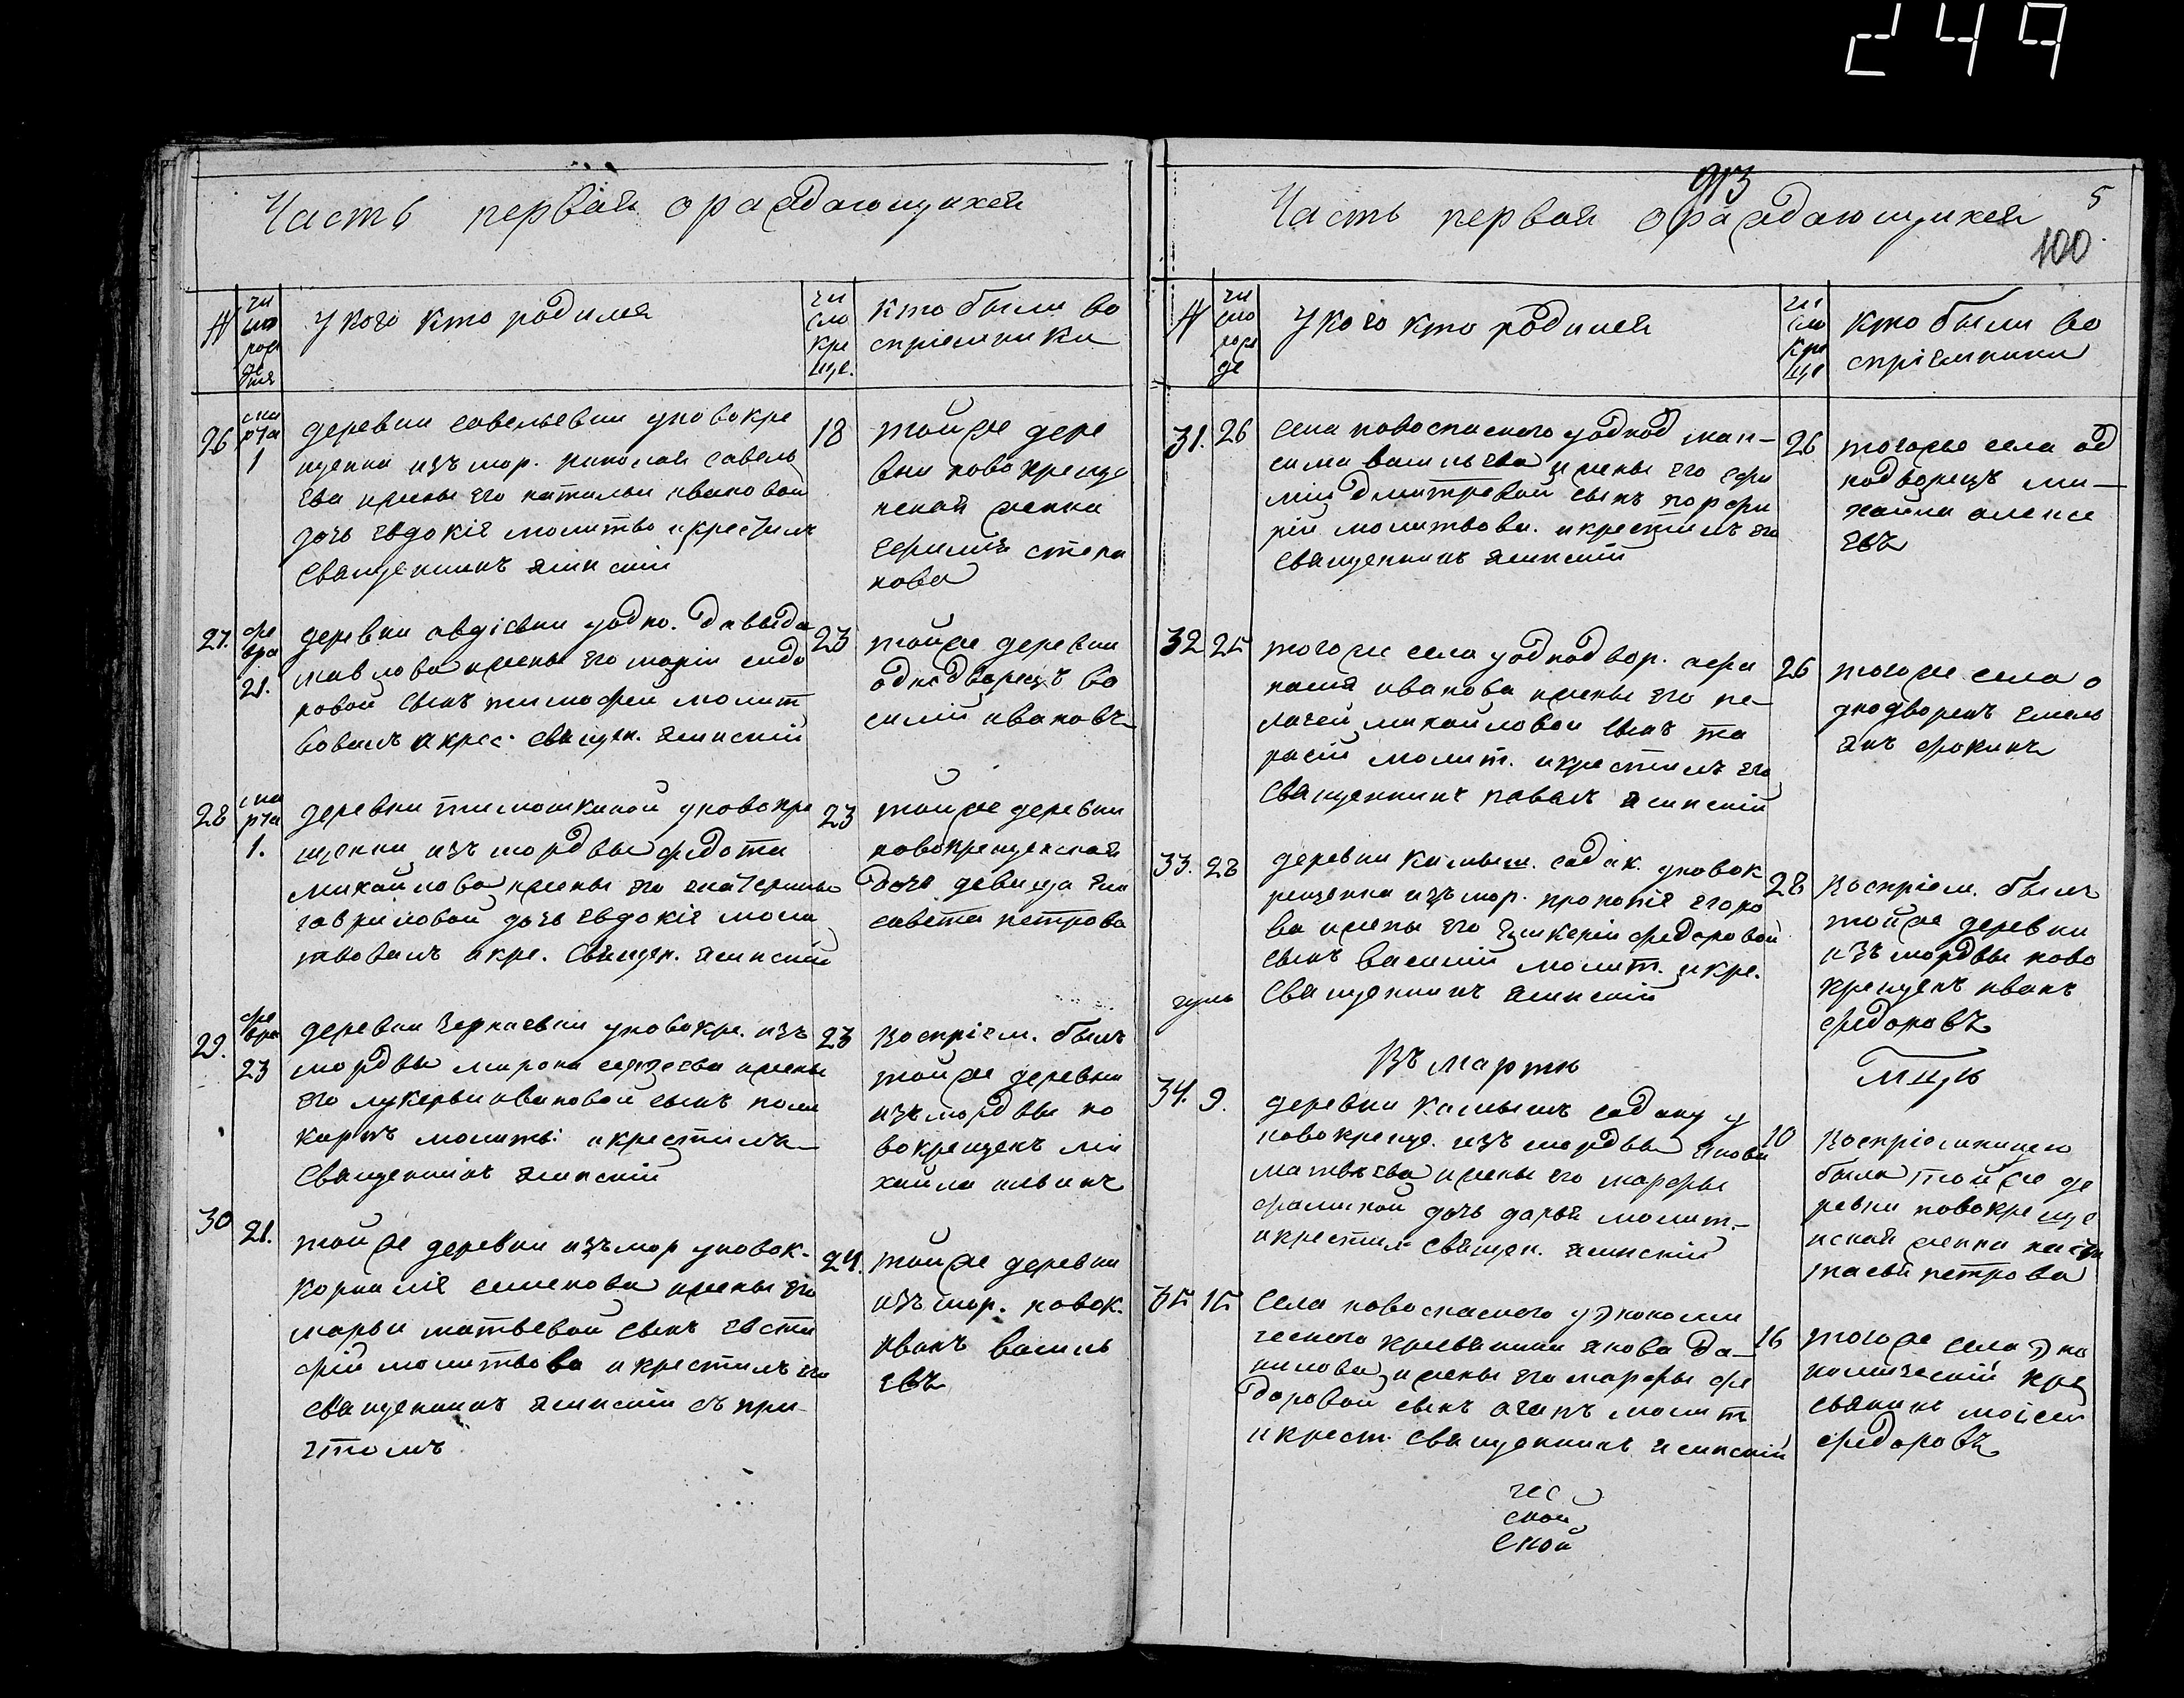 249
Часть первая о раждающихся
№
чи
сло
рож
де
ния
У кого кто родился
чи
сло
кре
ще.
кто были во
спріемники
26
мар
рта
1
деревни савельевки у новокре
щенна изъ мор. николая савель
ева и жены его натальи ивановой
дочь евдокія молитво и крестилъ
священникъ ясинскій
18
той же дере
вни новокреще
нской женка
ефимія степа
нова
27.
фе
вра
21.
деревни авдіевки у одно. давыда
павлова и жены его маріи сидо
ровой сынъ тимофей молит
вовалъ и крес. священ. ясинскій
23
той же деревни
однодворецъ ва
силій ивановъ
28
ма
рта
1.
деревни тимошкиной у новокре
щенна изъ мордвы федота
михайлова и жены его екатерины
гавриловой дочь евдокія моли
твовалъ и кре. священ. ясинскій
23
той же деревни
новокрещенской
дочь девица ели
савета петрова
29.
фе
вра
23
деревни черкаевки у новокре. изъ
мордвы мирона сергеева и жены
его лукерьи ивановой сынъ поли
карпъ молитв: и крестилъ
священникъ ясинскій
23
Воспріем. былъ
той же деревни
изъ мордвы но
вокрещенъ ми
хайла ильинъ
30
21.
той же деревни изъ мор у новок.
корнилія семенова и жены его
марьи матвевой сынъ евсти
фій молитвова и крестилъ его
священникъ ясинскій съ при
чтомъ
24.
той же деревни
изъ мор. новок.
иванъ василь
евъ
913
5
Часть первая о раждающихся
100
№
чи
сло
рож
де
У кого кто родился
чи
сло
кре
ще
кто были во
спріемники
31.
26
села новоспаского у однод мак-
сима васильева и жены его ефи
міи дмитревой сынъ порфи
рій молитвова. и крестилъ его
священникъ ясинскій
26
того же села од
нодворецъ ми-
хайла алексе
евъ
32
25
того же села у однодвор. афа
насія иванова и жены его пе
лагеи михайловой сынъ та
расій молит. и крестилъ его
священникъ павелъ ясинскій
26
того же села о
днодворецъ емель
янъ фокинъ
33.
28
деревни камыш. садак. у новок
рещенна изъ мор. прокопія егоро
ва и жены его гликеріи федоровой
сынъ василій молит. и кре.
священникъ ясинскій
28
Воспріем. былъ
той же деревни
изъ мордвы ново
крещенъ иванъ
Въ мартѣ
34.
9.
деревни камышъ садаку у
новокреще. изъ мордвы якова
матвѣева и жены его марфы
дочь дарья молит.
и крестил священ. ясинскій
10
Воспріемницею
была той же де
ревни новокреще
нской женка наста
тасья петрова
35
15
Села новоспаского у экономи
ческого кресьянина якова да-
нилова и жены его марфы фе
доровой сынъ агапъ молит
и крест. священникъ ясинскій
16
того же села эко
номическій кре
сьянинъ моісей
федоровъ
чес
ской
ской